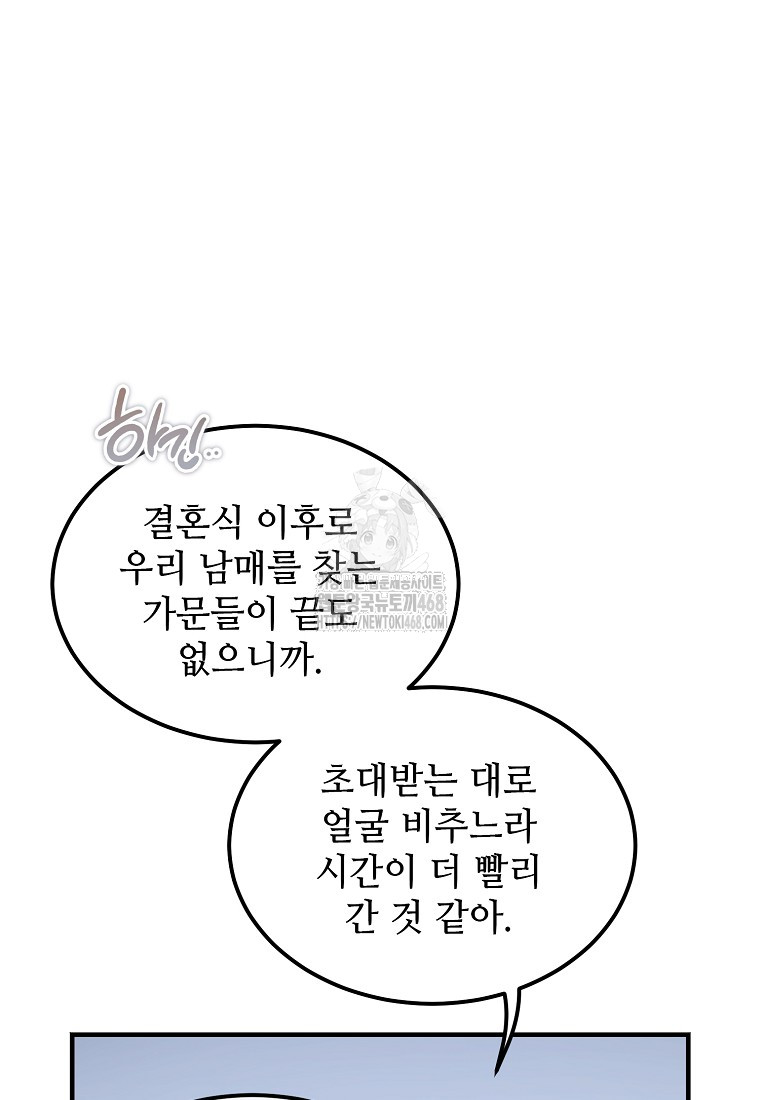 하긴..
결혼식 이후로
우리 남매를 찾는
가문들이 끝도
없으니까.
웹툰왕국뉴토끼468
HTTPS://NEWTOKI468.COM
초대받는 대로
얼굴 비추느라
시간이 더 빨리
간 것 같아.